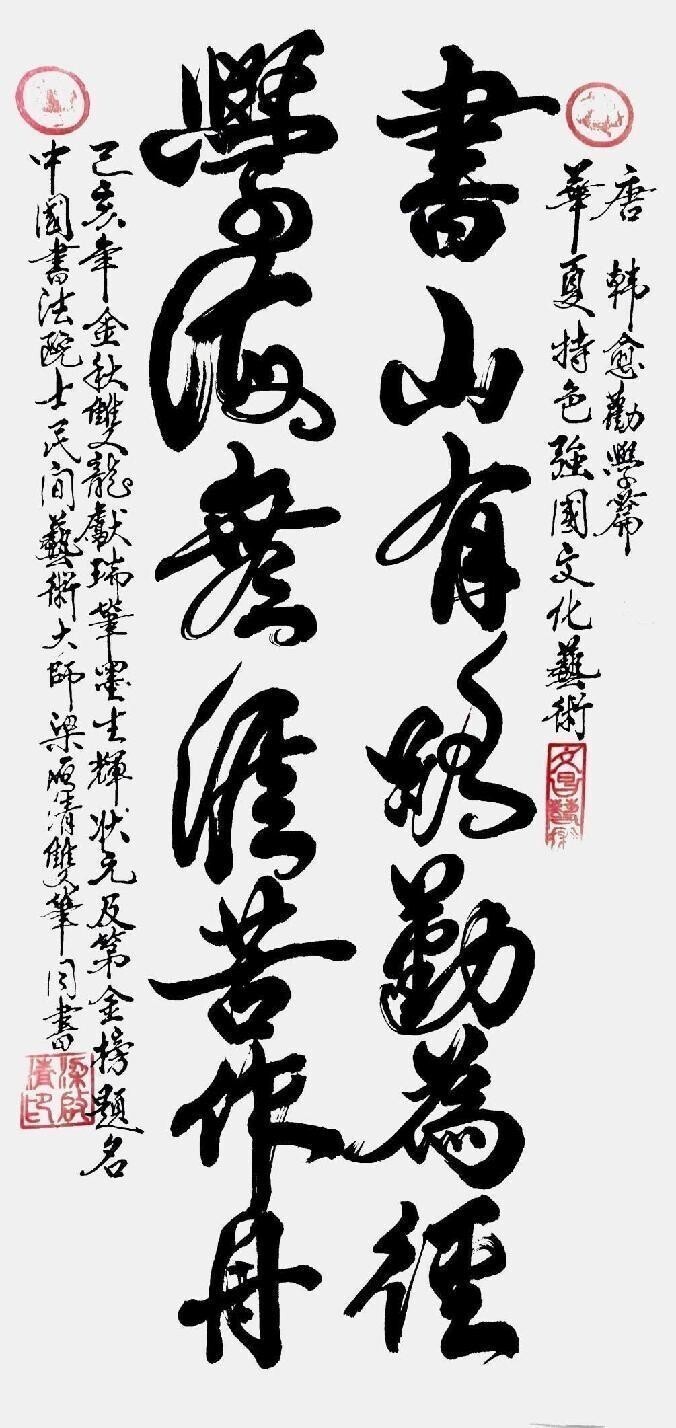 唐 韩愈勸學篇
華夏特色強國文化藝術
書山有路勤為徑
學海無涯苦作舟
己亥年金秋雙龍獻瑞筆墨生輝状元及第金榜題名
中國書法院士民间藝術大師梁啟清雙筆同書
梁啟清印